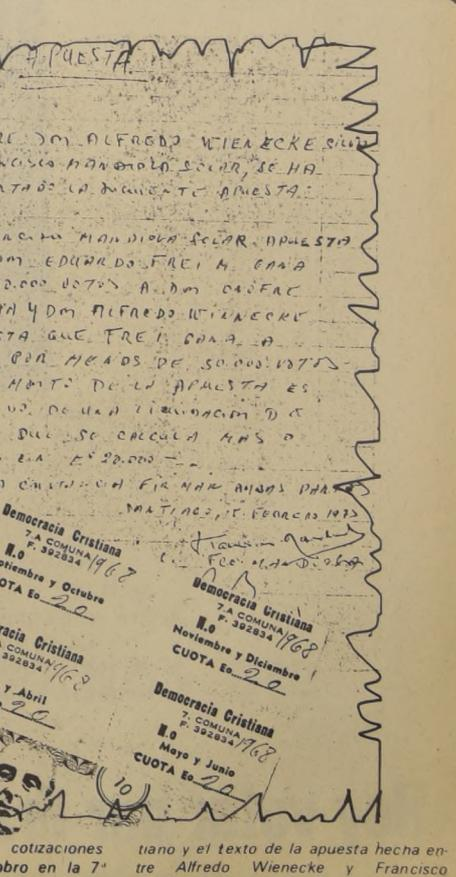 APUESTA
DON ALFREDO WIENECKE
MANDIOLA SOLAR, SE HA
LA SIGUIENTE APUESTA:
MANDIOLA SOLAR APUESTA
EDUARDO FREI M. GANA
VOTOS A DON ONOFRE
Y DON ALFREDO WIENECKE
QUE FREI GANA A
POR MENOS DE 50.000 VOTOS
DE LA APUESTA ES
DE UNA LIQUIDACION DE
QUE SE CALCULA MAS O
EN Eº 20.000
FIRMAN AMBAS PARTES
SANTIAGO, FEBRERO 1973
Democracia Cristiana
7.A COMUNA
F. 392834 1968
N.o
ptiembre y Octubre
CUOTA Eo 20
Democracia Cristiana
7.A COMUNA
F. 392834 1968
N.o
Noviembre y Diciembre
CUOTA Eo. 20
racia Cristiana
A COMUNA
392834
y Abril
20
Democracia Cristiana
7. COMUNA
F. 392834 1968
N.o
Mayo y Junio
CUOTA Eo 20
10
cotizaciones
obro en la 7ª
tiano y el texto de la apuesta hecha en-
tre Alfredo Wienecke y Francisco